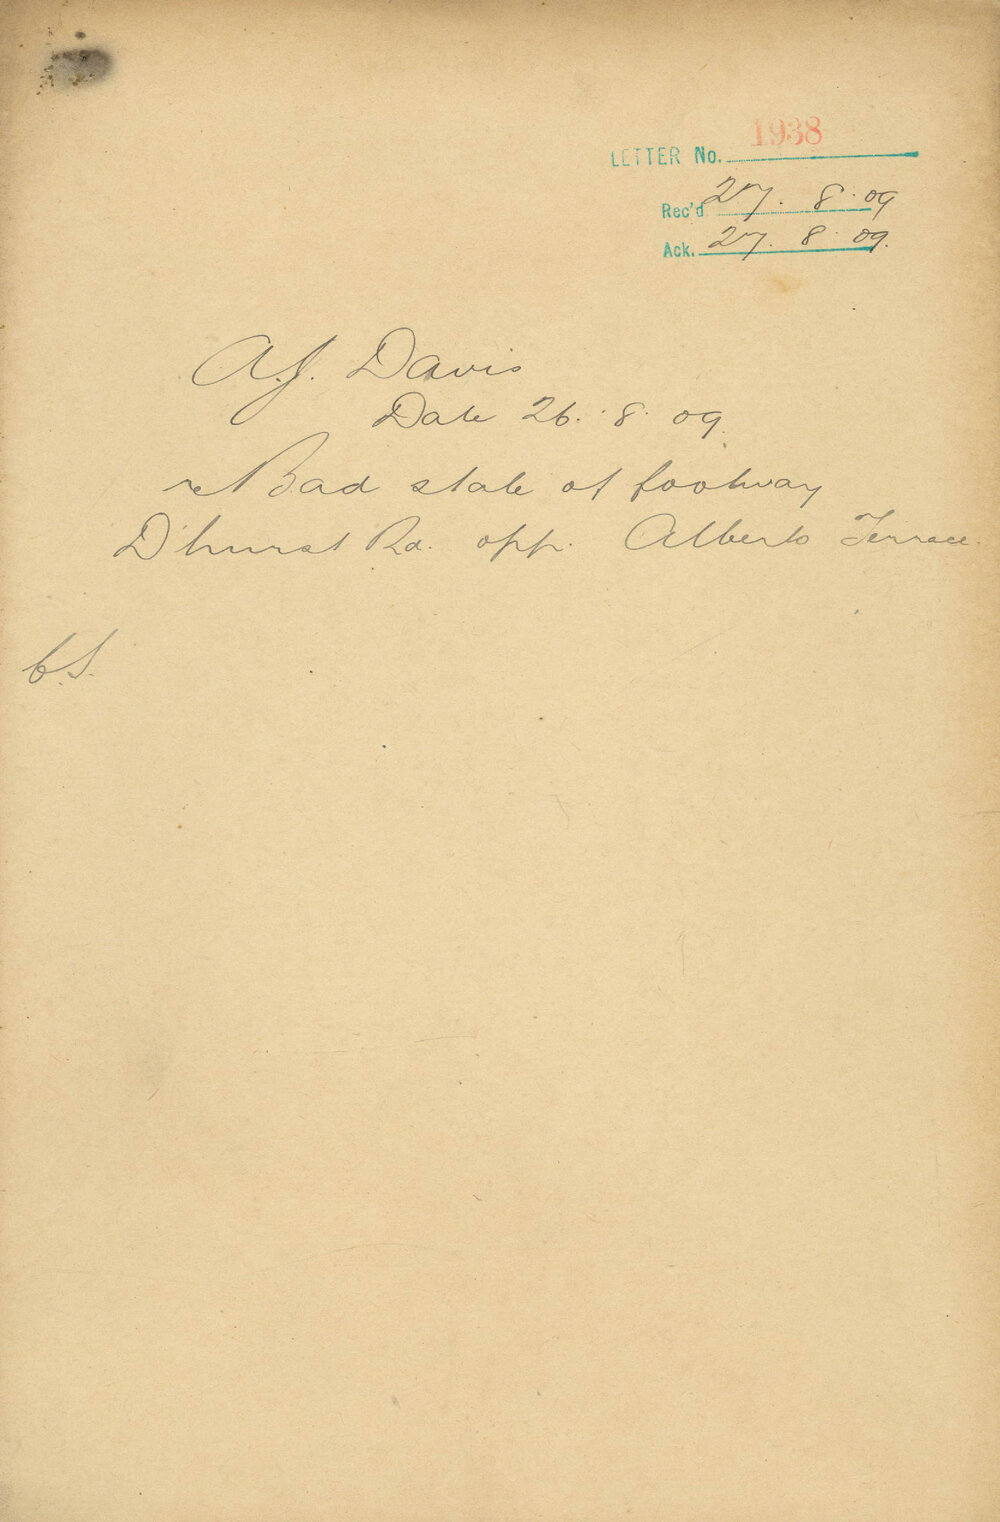 LETTER No. 1938
Rec'd 27. 8. 09
Ack. 27. 8. 09.
A.J. Davis
Date 26. 8. 09
re Bad state of footway
D'hurst Rd. opp. Alberto Terrace.
C.S.